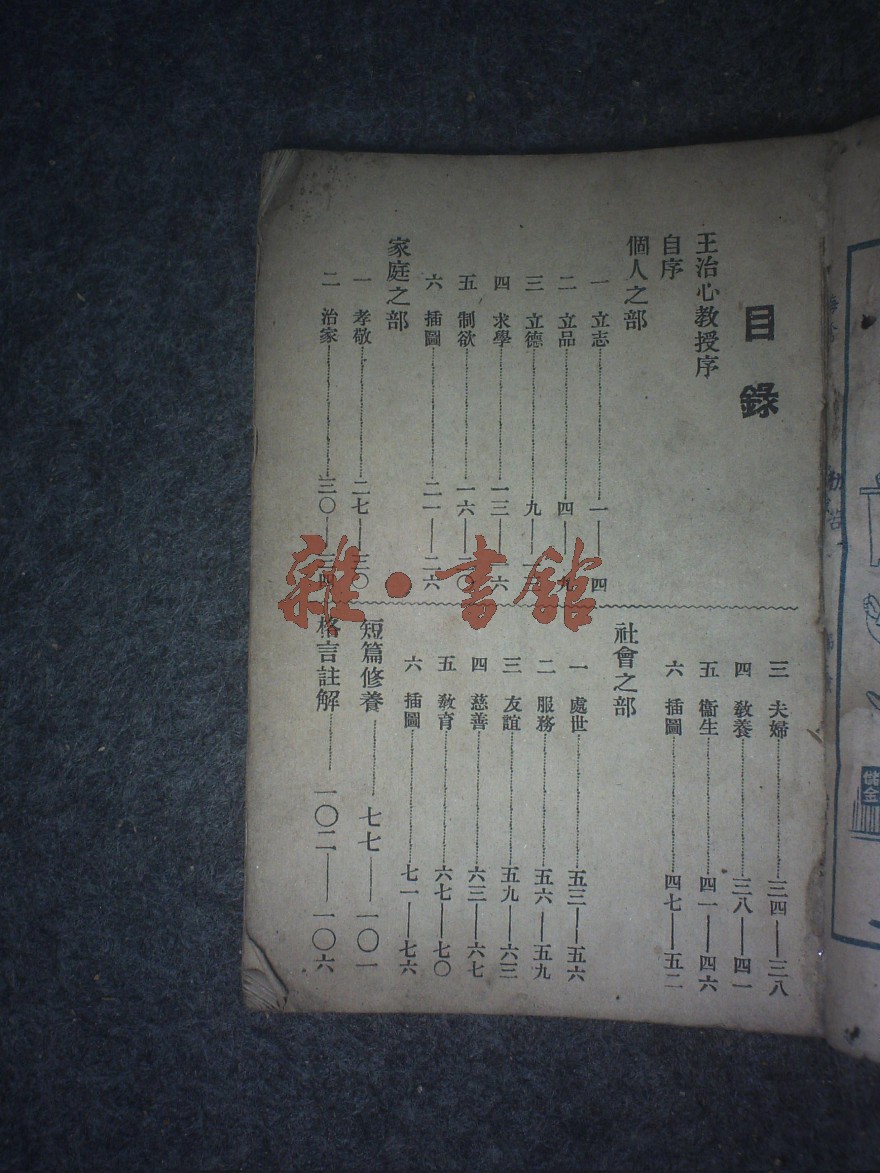 目錄
王治心教授序
自序
個人之部
一 立志 一——四
二 立品 四——九
三 立德 九——一三
四 求學 一三——一六
五 制欲 一六——二〇
六 插圖 二一——二六
家庭之部
一 孝敬 二七——三〇
二 治家 三〇——三四
三 夫婦 三四——三八
四 教養 三八——四一
五 衞生 四一——四六
六 插圖 四七——五二
社會之部
一 處世 五三——五六
二 服務 五六——五九
三 友誼 五九——六三
四 慈善 六三——六七
五 教育 六七——七〇
六 插圖 七一——七六
短篇修養 七七——一〇一
格言註解 一〇二——一〇六
雜·書館
儲金